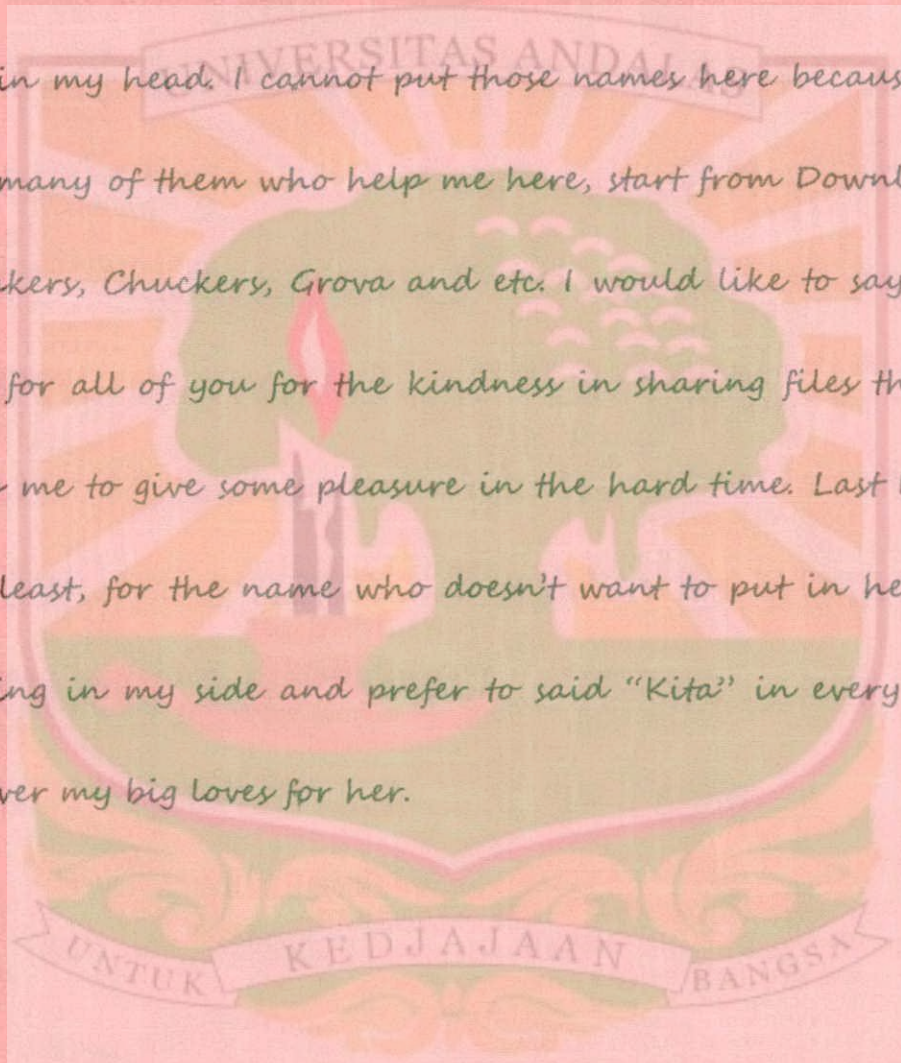 UNIVERSITAS ANDALAS
in my head. I cannot put those names here becaus
many of them who help me here, start from Downl
kers, Chuckers, Grova and etc. I would like to say
for all of you for the kindness in sharing files th
me to give some pleasure in the hard time. Last
least, for the name who doesn't want to put in he
ing in my side and prefer to said “Kita” in every
ver my big loves for her.
UNTUK KEDJAJAAN BANGSA